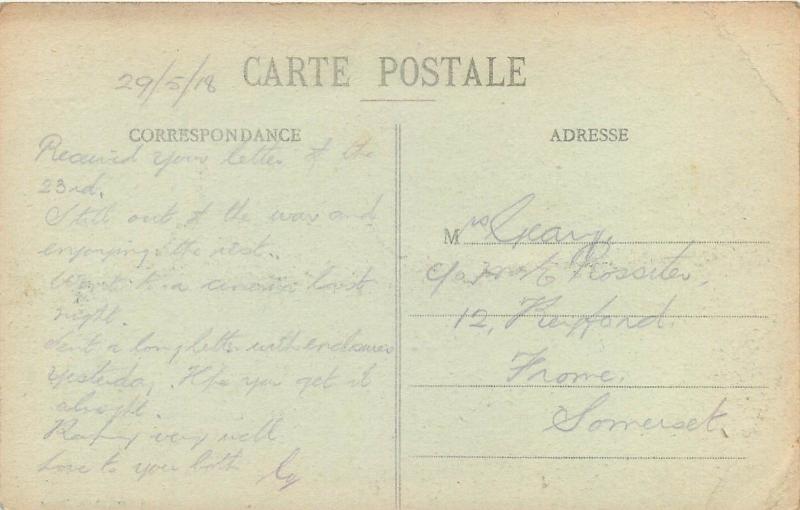 29/5/18
CARTE POSTALE
CORRESPONDANCE
Received your letter of the
23rd.
Still out of the war and
enjoying the rest.
Went to a cinema last
night.
Sent a long letter with enclosures
yesterday. Hope you get it
alright.
very well
Love to you both
ADRESSE
Mrs Geary,
c/o Mrs Rossiter,
12, Keyford
Frome.
Somerset.